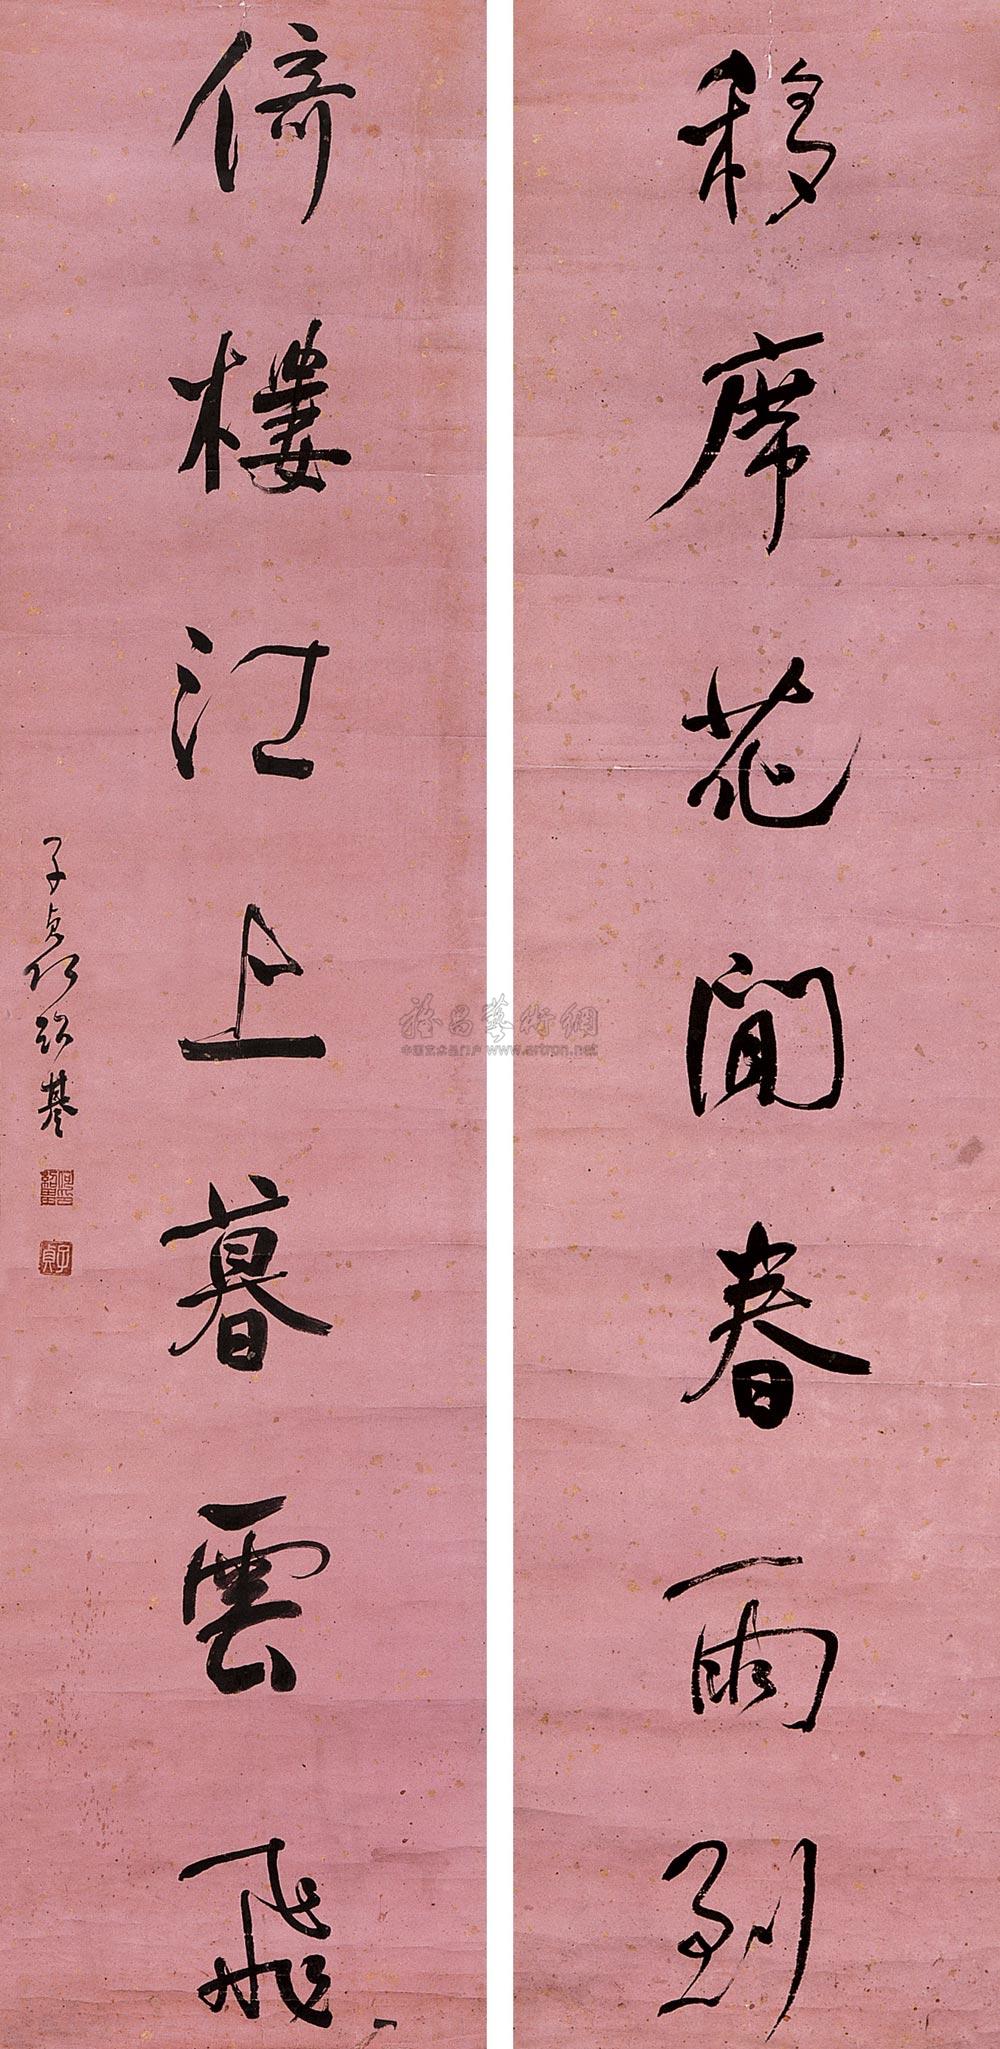 移席花間春雨到
倚樓江上暮雲飛
子貞何紹基
子貞
雅昌藝術網
www.artron.net